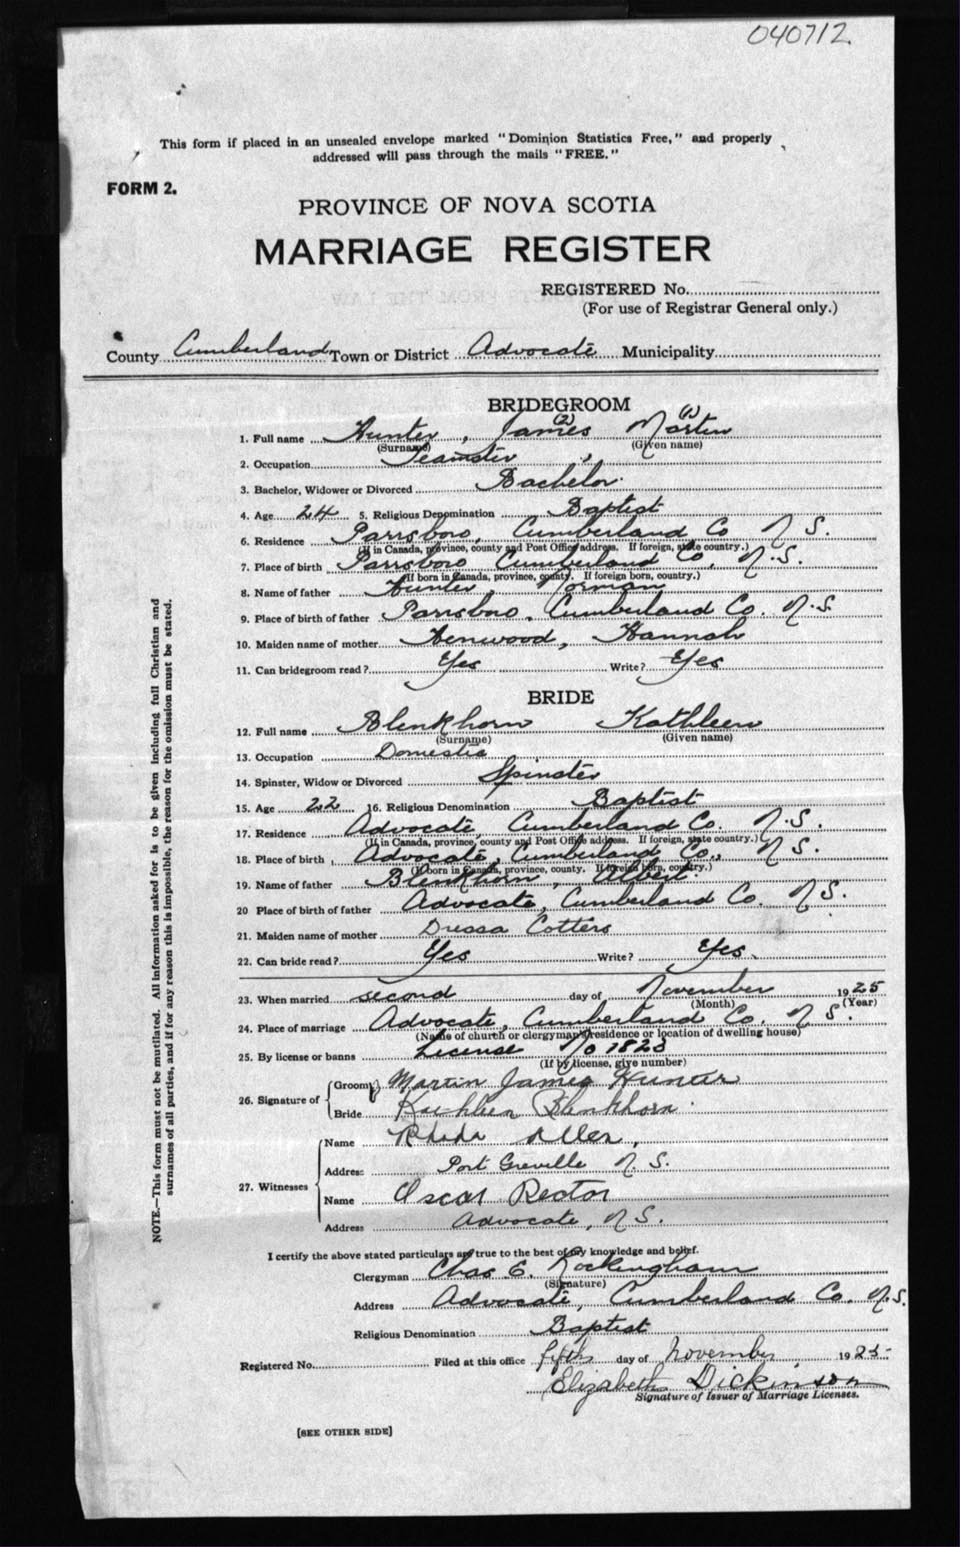 040712
This form if placed in an unsealed envelope marked "Dominion Statistics Free," and properly
addressed will pass through the mails "FREE."
FORM 2.
PROVINCE OF NOVA SCOTIA
MARRIAGE REGISTER
REGISTERED No.
(For use of Registrar General only.)
County Cumberland Town or District Advocate Municipality
BRIDEGROOM
(2) (1)
1. Full name Hunter, James Martin
(Surname) (Given name)
2. Occupation Teamster
3. Bachelor, Widower or Divorced Bachelor
4. Age 24 5. Religious Denomination Baptist
6. Residence Parrsboro, Cumberland Co N.S.
(If in Canada, province, county and Post Office address. If foreign, state country.)
7. Place of birth Parrsboro Cumberland Co, N.S.
(If born in Canada, province, county. If foreign born, country.)
8. Name of father Hunter, Norman
9. Place of birth of father Parrsboro, Cumberland Co. N.S.
10. Maiden name of mother Henwood, Hannah
11. Can bridegroom read? Yes Write? Yes
BRIDE
12. Full name Blenkhorn Kathleen
(Surname) (Given name)
13. Occupation Domestic
14. Spinster, Widow or Divorced Spinster
15. Age 22 16. Religious Denomination Baptist
17. Residence Advocate, Cumberland Co. N.S.
(If in Canada, province, county and Post Office address. If foreign, state country.)
18. Place of birth Advocate, Cumberland Co., N.S.
(If born in Canada, province, county. If foreign born, country.)
19. Name of father Blenkhorn,
20 Place of birth of father Advocate, Cumberland Co. N.S.
21. Maiden name of mother Dressa Cotters
22. Can bride read? Yes Write? Yes.
23. When married second day of November 1925
(Month) (Year)
24. Place of marriage Advocate, Cumberland Co. N.S.
(Name of church or clergyman's residence or location of dwelling house)
25. By license or banns License No 1823
(If by license, give number)
26. Signature of Groom Martin James Hunter
Bride Kathleen Blenkhorn.
27. Witnesses Name Rheda Allen,
Address Port Greville N.S.
Name Oscar Rector
Address Advocate, N.S.
I certify the above stated particulars are true to the best of my knowledge and belief.
Clergyman Chas E. Rockingham
(Signature)
Address Advocate, Cumberland Co. N.S.
Religious Denomination Baptist
Registered No. Filed at this office fifth day of November, 1925
Elizabeth Dickinson
Signature of Issuer of Marriage Licenses.
[SEE OTHER SIDE]
NOTE.—This form must not be mutilated. All information asked for is to be given including full Christian and
surnames of all parties, and if for any reason this is impossible, the reason for the omission must be stated.